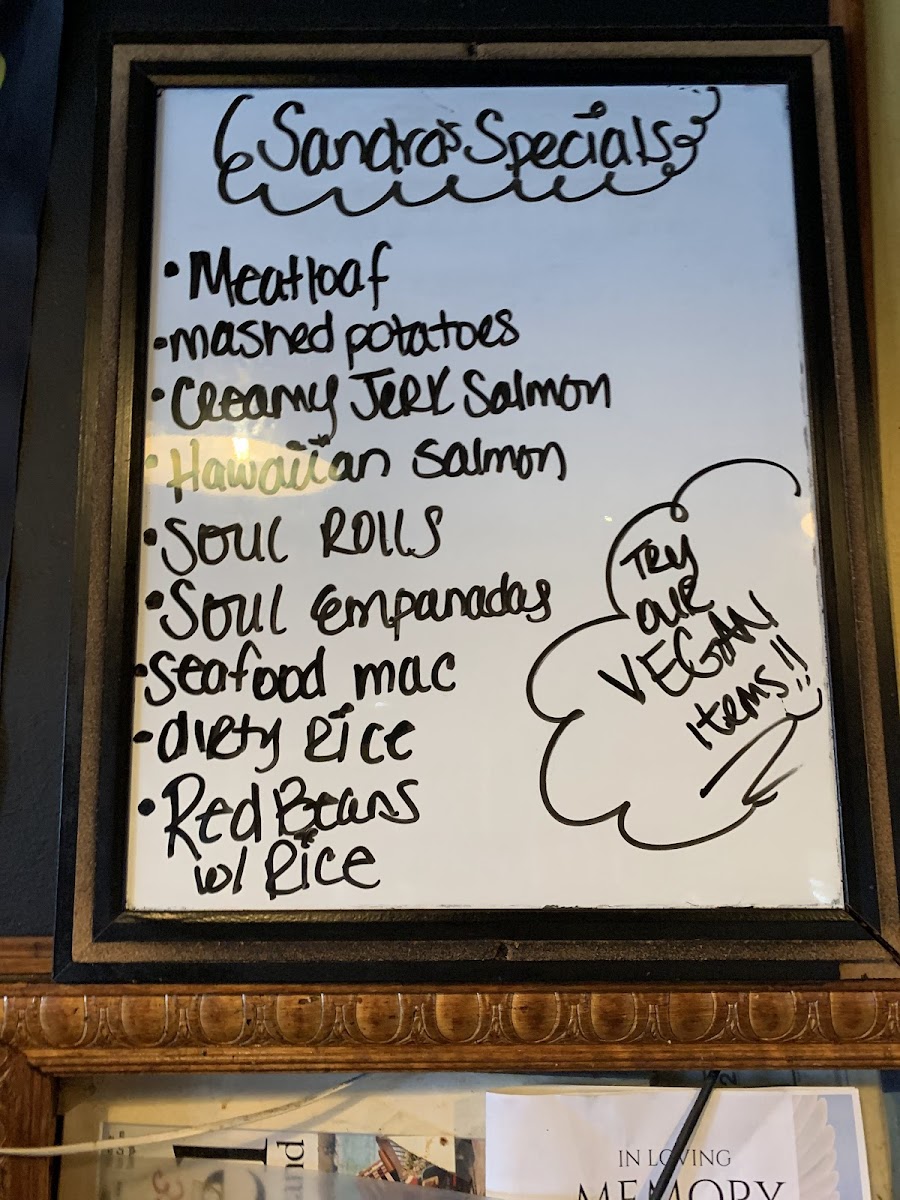 Sandra's Specials
• Meatloaf
• mashed potatoes
• Creamy Jerk Salmon
• Hawaiian Salmon
• Soul Rolls
• Soul Empanadas
• Seafood mac
• dirty Rice
• Red Beans
w/ Rice
Try
our
VEGAN
Items!!
IN LOVING
MEMORY